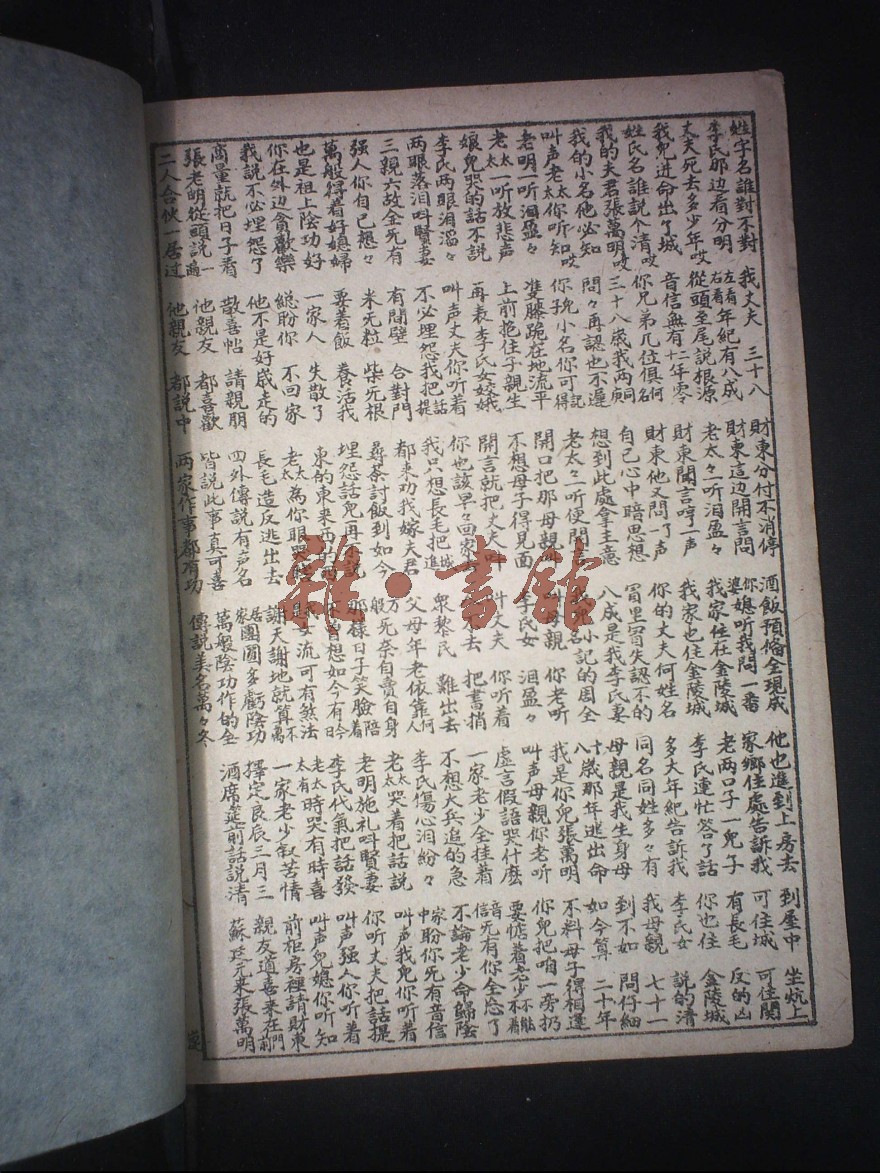 姓字名誰對不對 我丈夫 三十八 財東分付不消停 酒飯預俻全現成 他也進到上房去 到屋中 坐炕上
李氏那边看分明 左看右看年紀有八成 財東這边開言問 你婆媳听我問一番 家鄉住處告訴我 可住城 可住関
丈夫死去多少年哎 從頭至尾説根源 老太々一听泪盈々 我家住在金陵城 老两口子一兒子 有長毛 反的凶
我兒逃命出了城 音信無有十二年零 財東聞言哼一声 我家也住金陵城 李氏連忙答了話 你也住 金陵城
姓氏名誰説个清哎 你兄弟几位俱何名 財東他又問了声 你的丈夫何姓名 多大年紀告訴我 李氏女 説的清
我的夫君張萬明哎 三十八歲我两同庚 自己心中暗思想 冒里冒失認不的 同名同姓多々有 我母親 七十一
我的小名他必知哎 問々再認也不遲 想到此處拿主意 八成是我李氏妻 母親是我生身母 到不如 問仔細
叫声老太太你听知 你兒小名你可得記 老太々一听便開言 我兒小名記的周全 十八歲那年逃出命 如今算 二十年
老明一听泪盈々 雙膝跪在地流平 開口把那母親叫 叫母親 你老听 我是你兒張萬明 不料母子得相逢
老太太一听放悲声 上前抱住子親生 不想母子得見面 李氏女 泪盈々 叫声母親你老听 你兒把咱一旁扔
娘兒哭的話不説 再表李氏女姣娥 開言就把丈夫叫 叫丈夫 你听着 虛言假語哭什麽 要惦着老少不能不看
李氏两眼泪滔々 叫声丈夫你听着 你也該早々回家 去 把書捎 一家老少全挂着 音信旡有你全忘了
两眼落泪叫賢妻 不必埋怨我把話提 我只想長毛把城進 衆黎民 難出去 不想大兵追的急 不論老少命歸陰
三親六故全旡有 有間壁 合對門 都來劝我嫁夫君 父母年老依靠何人 李氏傷心泪紛々 家中盼你旡有音信
强人你自己想々 米旡粒 柴旡根 尋茶討飯到如今 万般旡奈自賣自身 老太太哭着把話説 叫声我兒你听着
萬般得着好媳婦 要着飯 養活我 埋怨話兒再不説 那樣日子笑臉陪着 老明施礼叫賢妻 你听丈夫把話提
也是祖上陰功好 一家人 失散了 東的東來西的西 不曾想如今有今日 李氏代氣把話發 叫声强人你听着
你在外边貪歡樂 縂盼你 不回家 老太太為你眼哭瞎 是女流可有煞法 老太太有時哭有時喜 叫声兒媳你听知
我説不必埋怨了 他不是好歲走的 長毛造反逃出去 謝天謝地就算不离 一家老少叙苦情 前柜房裡請財東
商量就把日子看 散喜帖 請親朋 四外傳説有声名 居家團圓多虧陰功 擇定良辰三月三 親友道喜來在門前
張老明從頭説一遍 他親友 都喜歡 皆説此事真可喜 萬般陰功作的全 酒席筵前話説清 蘇廷元來張萬明
二人合伙一居过 他親友 都説中 两家作事都有功 傳説美名萬々冬
雜·書館